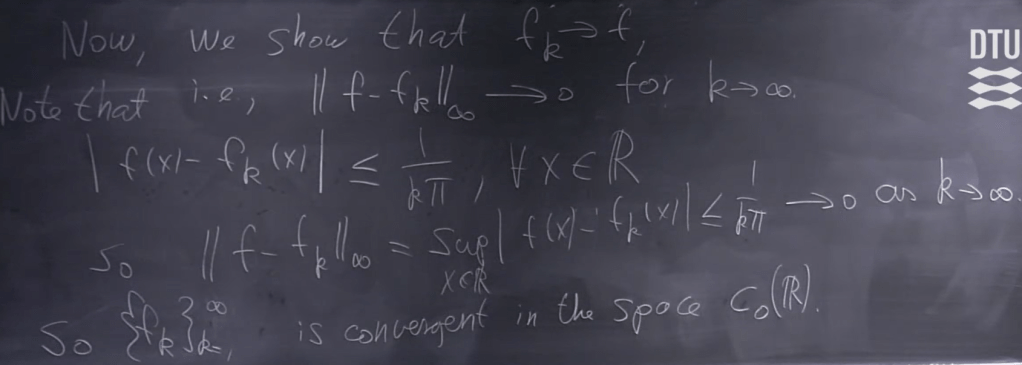 Now, we show that f_k → f,
DTU
i.e., ‖f - f_k‖_∞ → 0 for k → ∞.
Note that
|f(x) - f_k(x)| ≤ 1/(kπ), ∀ x ∈ ℝ
So ‖f - f_k‖_∞ = Sup_{x∈ℝ} |f(x) - f_k(x)| ≤ 1/(kπ) → 0 as k → ∞.
So {f_k}_{k=1}^∞ is convergent in the space C_0(ℝ).